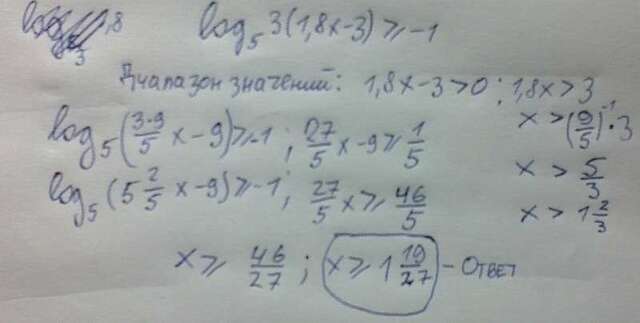 log₅3(1,8x-3)≥-1
Диапазон значений: 1,8x-3>0; 1,8x>3
x>(9/5)⁻¹·3
log₅(3·9/5 x-9)≥-1; 27/5 x-9≥1/5
x>5/3
log₅(5 2/5 x-9)≥-1; 27/5 x≥46/5
x>1 2/3
x≥46/27; x≥1 19/27 - Ответ